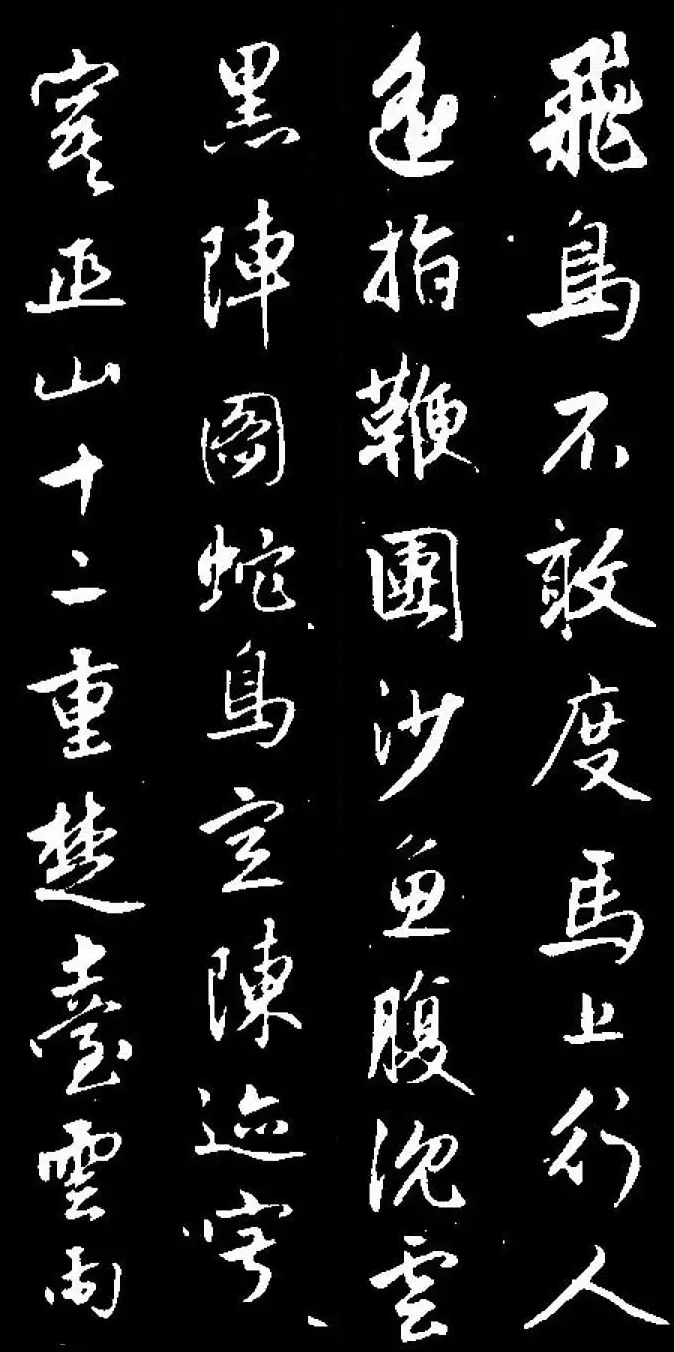 飛鳥不敢度馬上行人
遙指鞭團沙魚腹沈雲
黑陣圖蛇鳥空陳迹
寞巫山十二重楚臺雲雨